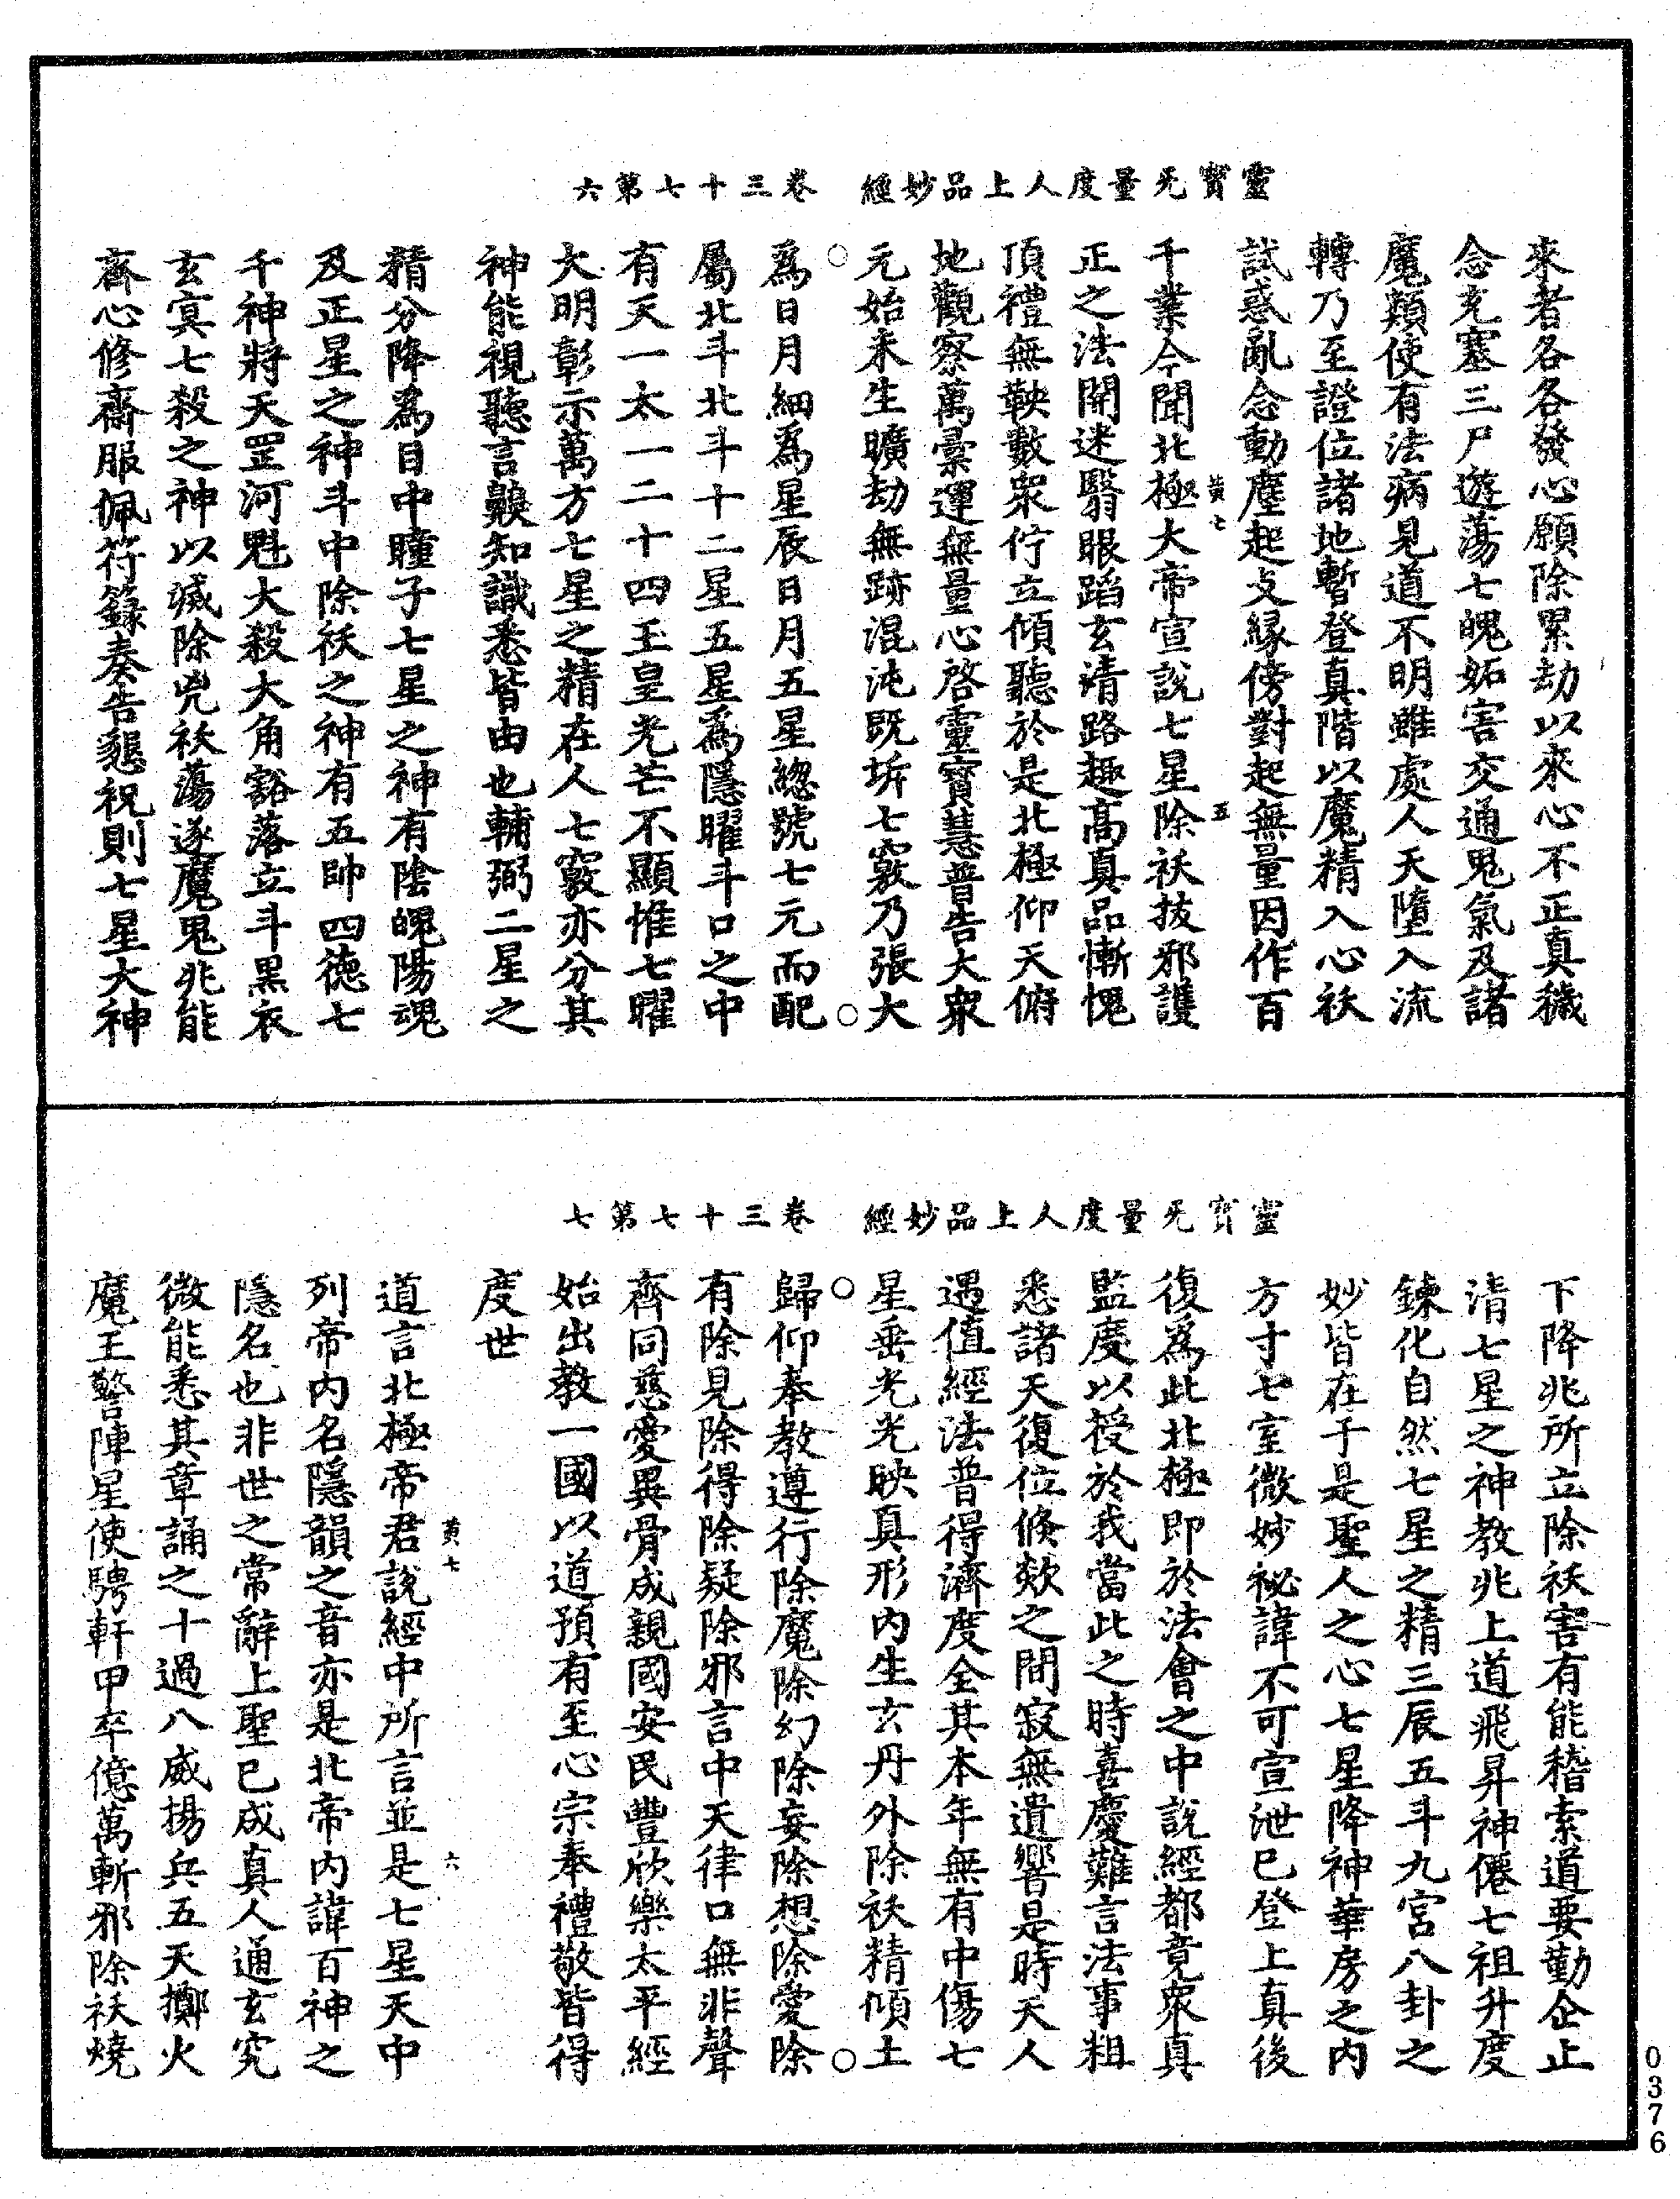 靈寳无量度人上品妙經　卷三十七第六
來者各各發心願除累劫以來心不正真穢
念充塞三尸遊蕩七魄妬害交通鬼氣及諸
魔類使有法病見道不明雖處人天墮入流
轉乃至證位諸地暫登真階以魔精入心祅
試惑亂念動塵起攴緣傍對起無量因作百
黃七　五
千業今聞北極大帝宣說七星除祅拔邪護
正之法開迷翳眼蹈玄清路趣高真品慚愧
頂禮無鞅數衆佇立傾聽於是北極仰天俯
地觀察萬彙運無量心啓靈寳慧普告大衆
元始未生曠劫無跡混沌既坼七竅乃張大
○　○
為日月細為星辰日月五星總號七元而配
屬北斗北斗十二星五星為隱曜斗口之中
有天一太一二十四玉皇光芒不顯惟七曜
大明彰示萬方七星之精在人七竅亦分其
神能視聽言齅知識悉皆由也輔弼二星之
精分降為目中瞳子七星之神有陰魄陽魂
及正星之神斗中除祅之神有五帥四德七
千神將天罡河魁大殺大角豁落立斗黑衣
玄寞七殺之神以滅除兇祅蕩逐魔鬼兆能
齋心修齋服佩符籙奏告懇祝則七星大神
靈寳无量度人上品妙經　卷三十七第七
下降兆所立除祅害有能稽索道要勤企止
清七星之神教兆上道飛昇神僊七祖升度
鍊化自然七星之精三辰五斗九宮八卦之
妙皆在于是聖人之心七星降神華房之內
方寸七室微妙祕諱不可宣泄已登上真後
復為此北極即於法會之中說經都竟衆真
監度以授於我當此之時喜慶難言法事粗
悉諸天復位倏欻之間寂無遺響是時天人
遇值經法普得濟度全其本年無有中傷七
星垂光光映真形內生玄丹外除祅精傾土
○　○
歸仰奉教遵行除魔除幻除妄除想除愛除
有除見除得除疑除邪言中天律口無非聲
齊同慈愛異骨成親國安民豐欣樂太平經
始出教一國以道預有至心宗奉禮敬皆得
度世
黃七　六
道言北極帝君說經中所言並是七星天中
列帝內名隱韻之音亦是北帝內諱百神之
隱名也非世之常辭上聖已成真人通玄究
微能悉其章誦之十過八威揚兵五天擲火
魔王警陣星使騁軒甲卒億萬斬邪除祅燒
0376